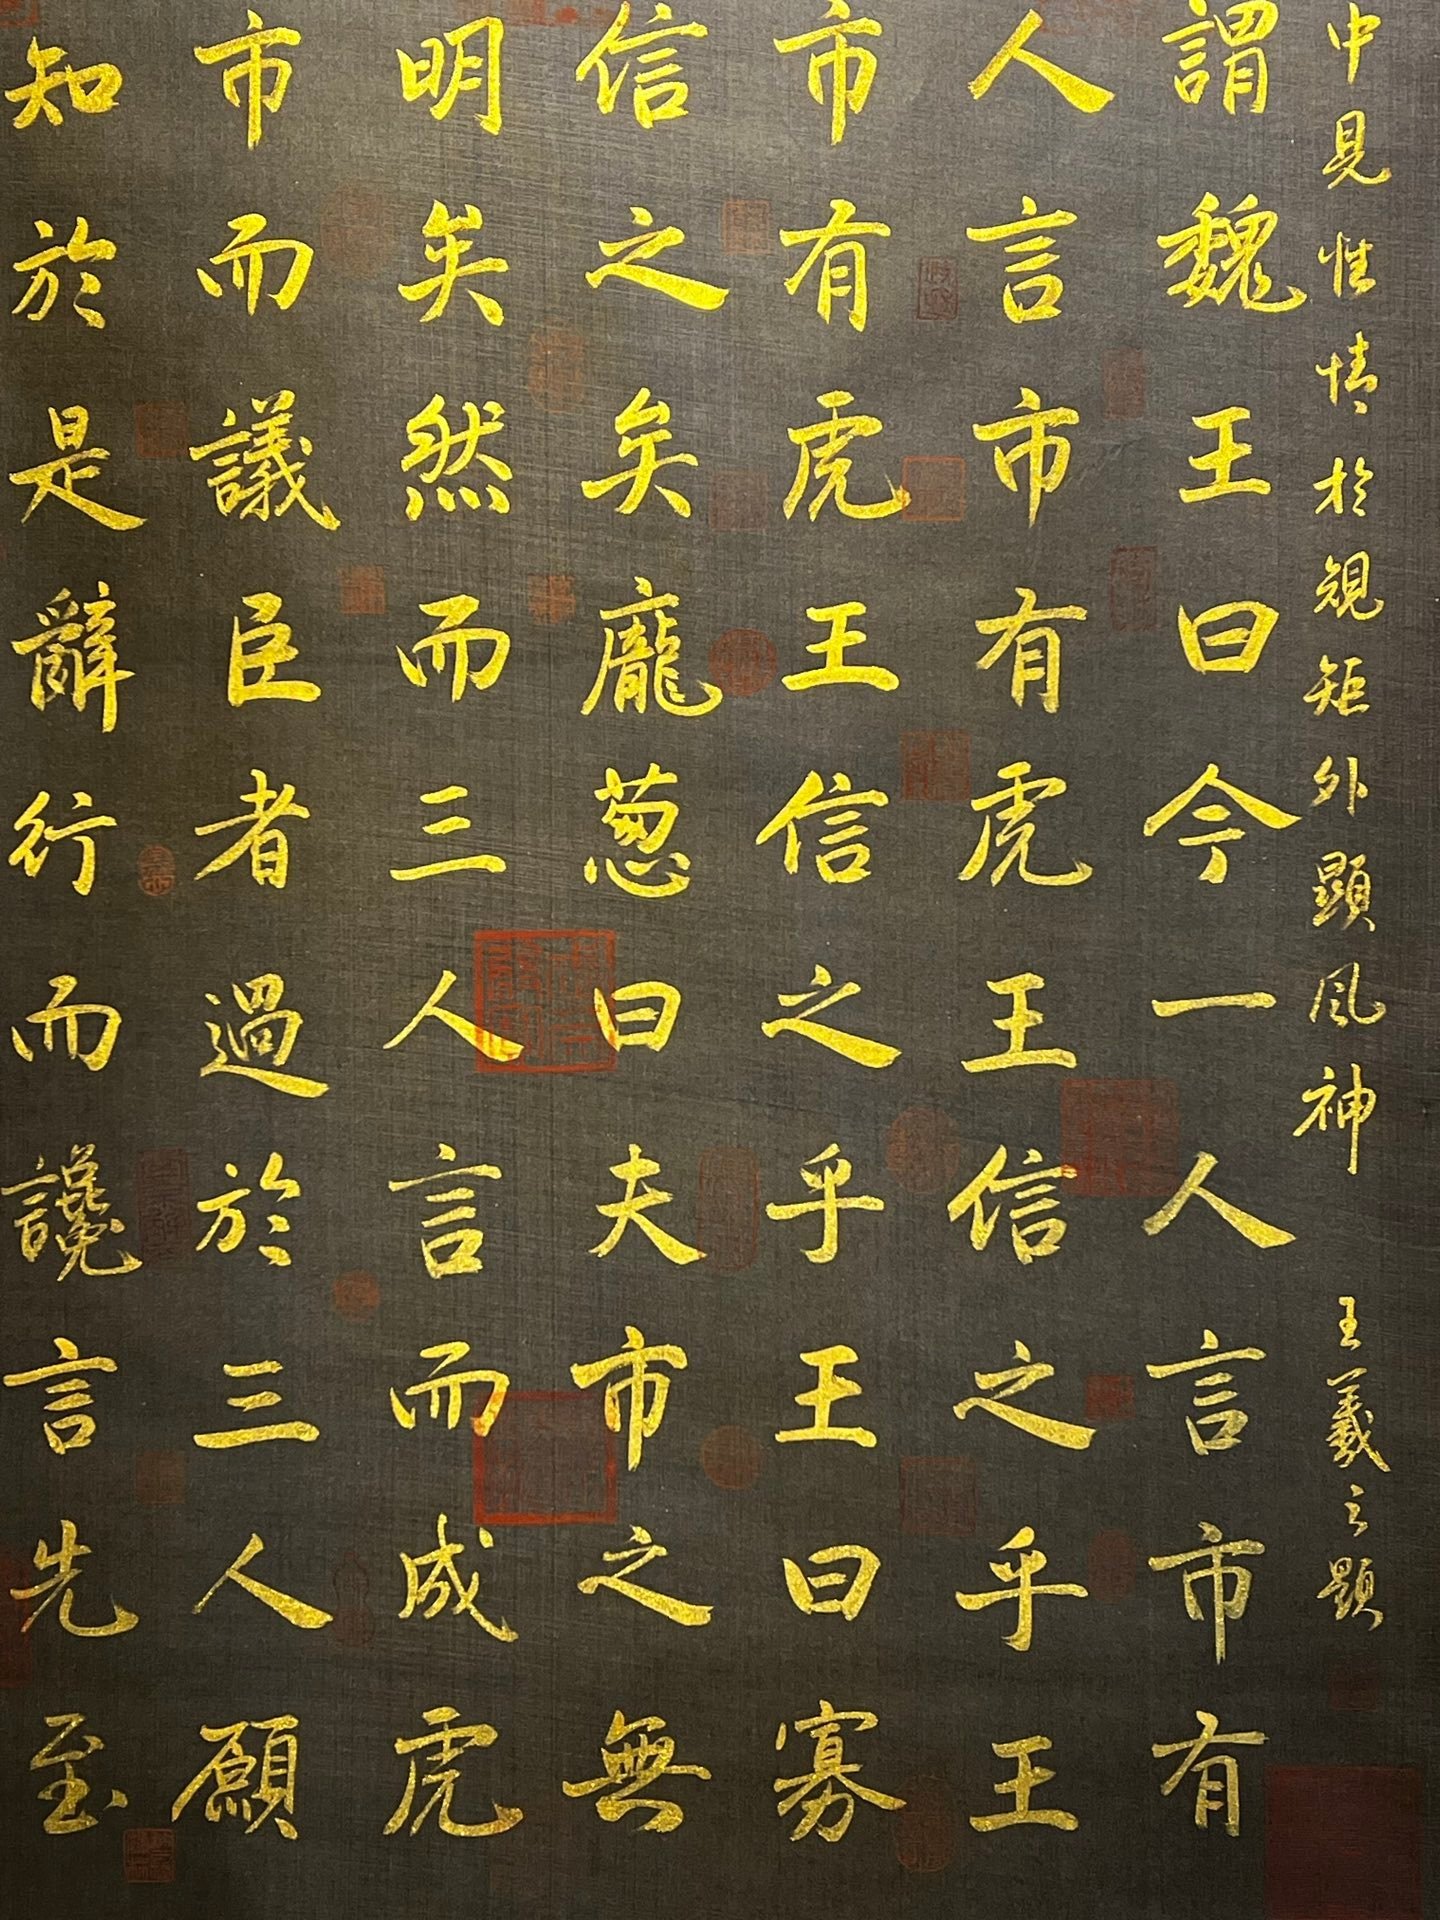 中見性情於規矩外顯風神 王羲之題
謂魏王曰今一人言市有
人言市有虎王信之乎王
市有虎王信之乎王曰寡
信之矣龐葱曰夫市之無
明矣然而三人言而成虎
市而議臣者過於三人願
知於是辭行而讒言先至